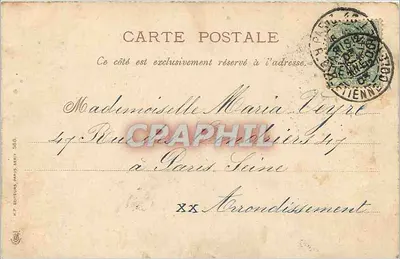 CARTE POSTALE
Ce côté est exclusivement réservé à l'adresse.
Mademoiselle Maria Veyre
47 Rue des 47
CPRAPHIL
à Paris. Seine
XX Arrondissement
PARIS
ETIENNE